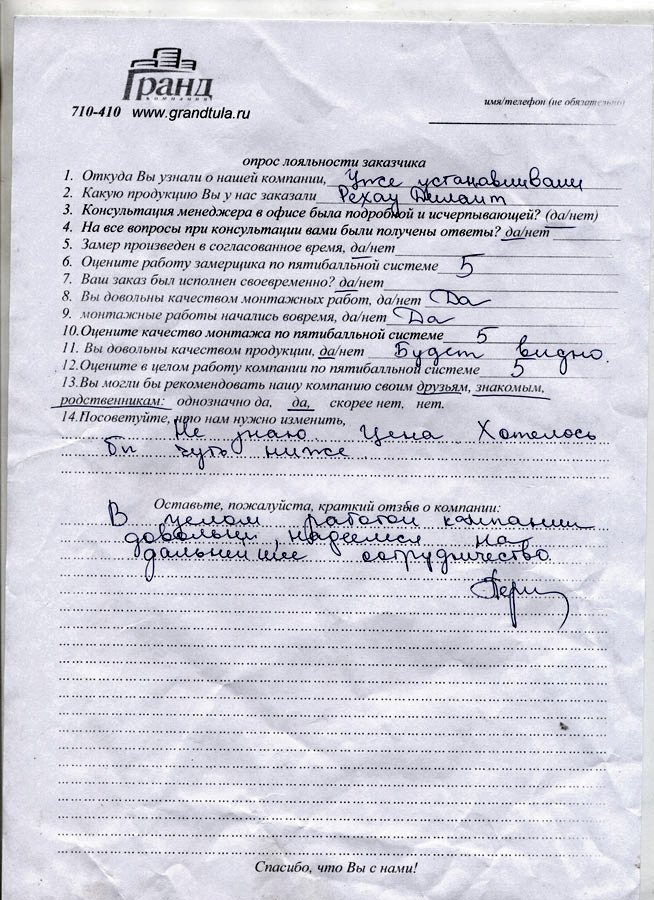 Гранд
компания
710-410 www.grandtula.ru
имя/телефон (не обязательно)
опрос лояльности заказчика
1. Откуда Вы узнали о нашей компании, Уже устанавливали
2. Какую продукцию Вы у нас заказали Рехау Дилайт
3. Консультация менеджера в офисе была подробной и исчерпывающей? (да/нет)
4. На все вопросы при консультации вами были получены ответы? да/нет
5. Замер произведен в согласованное время, да/нет
6. Оцените работу замерщика по пятибалльной системе 5
7. Ваш заказ был исполнен своевременно? да/нет
8. Вы довольны качеством монтажных работ, да/нет Да
9. монтажные работы начались вовремя, да/нет Да
10.Оцените качество монтажа по пятибалльной системе 5
11. Вы довольны качеством продукции, да/нет Будет видно.
12.Оцените в целом работу компании по пятибалльной системе 5
13.Вы могли бы рекомендовать нашу компанию своим друзьям, знакомым,
родственникам: однозначно да, да, скорее нет, нет.
14.Посоветуйте, что нам нужно изменить,
Не знаю. Цена Хотелось
бы чуть ниже
Оставьте, пожалуйста, краткий отзыв о компании:
В целом работой кампании
довольны, надеемся на
дальнейшее сотрудничество.
Спасибо, что Вы с нами!